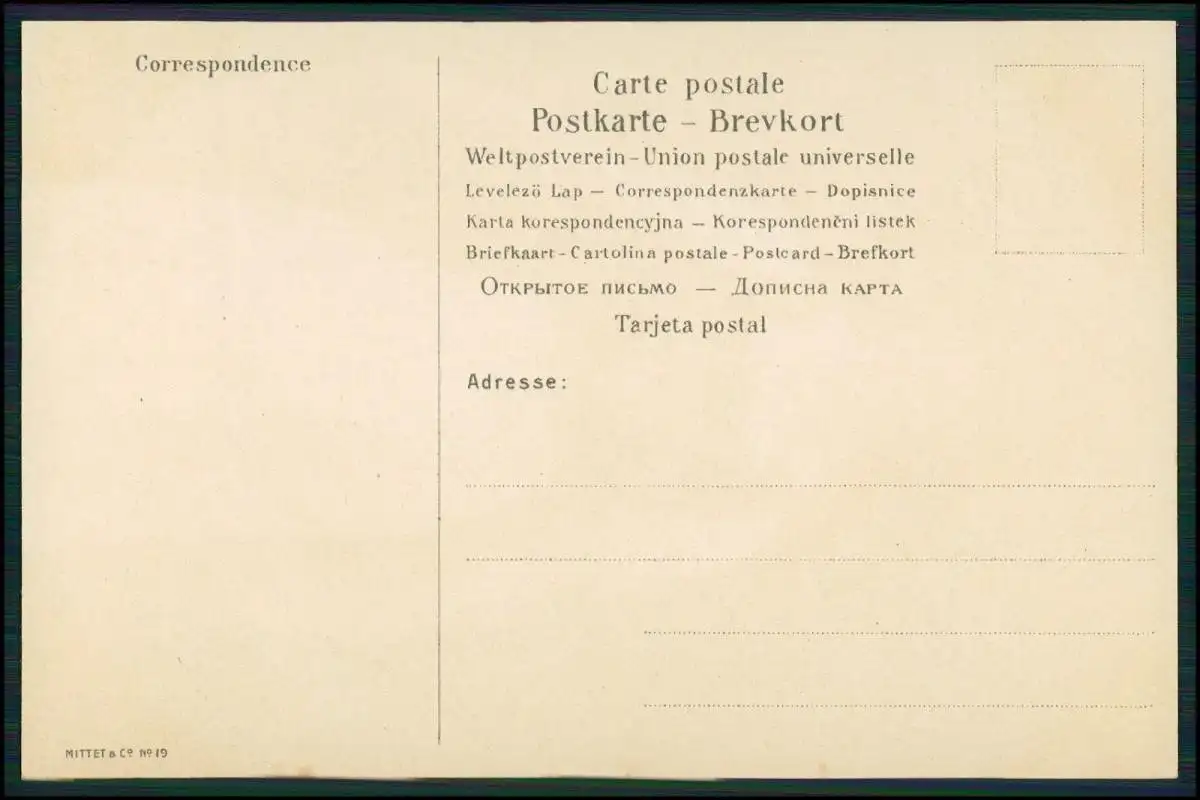 Correspondence
Carte postale
Postkarte – Brevkort
Weltpostverein - Union postale universelle
Levelezö Lap — Correspondenzkarte — Dopisnice
Karta korespondencyjna — Korespondenčni listek
Briefkaart - Cartolina postale - Postcard - Brefkort
Открытое письмо — Дописна карта
Tarjeta postal
Adresse:
MITTET & Cº Nº 19